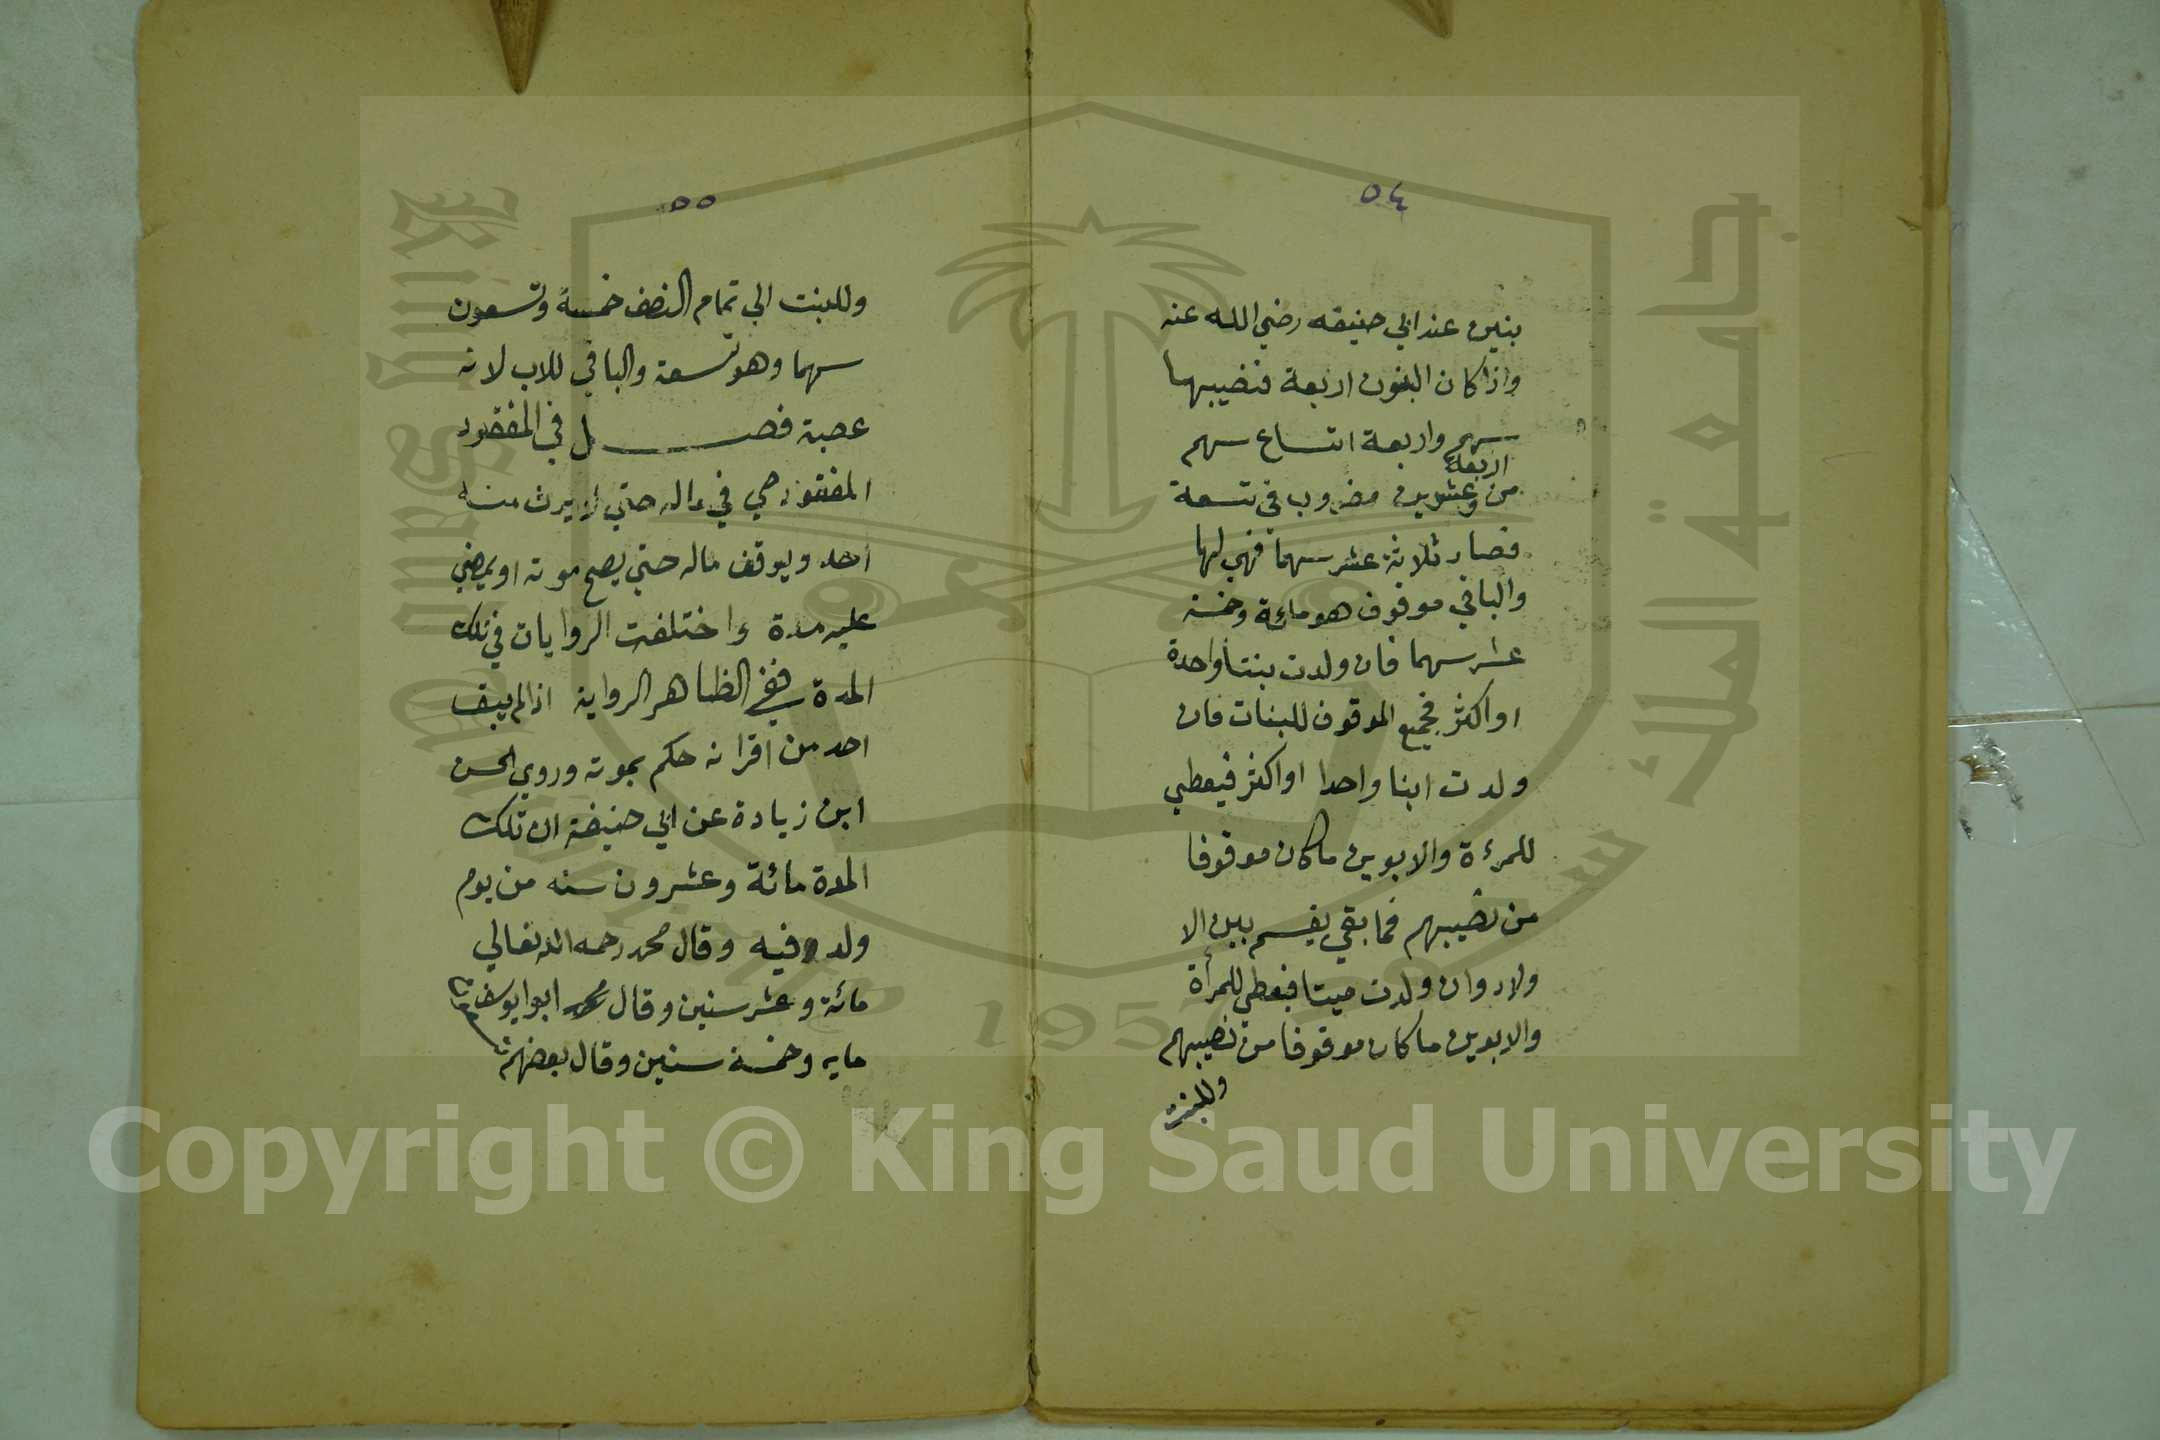 ٥٤
بنين عند ابي حنيفه رضي الله عنه
واذا كان البنون اربعة فنصيبها
سهم واربعة اتساع سهم
اربعة
من وعشرين مضروب في تسعة
فصار ثلاثة عشر سهما فهي لها
والباقي موقوف هو مائة وخمسة
عشر سهما فان ولدت بنتا واحدة
او اكثر فجميع الموقوف للبنات فان
ولدت ابنا واحدا او اكثر فيعطي
للمرءة والابوين ما كان موقوفا
من نصيبهم فما بقي يقسم بين الا
ولاد وان ولدت ميتا فيعطي للمرأة
والابوين ما كان موقوفا من نصيبهم
وللبنت
٥٥
وللبنت الي تمام النصف خمسة وتسعون
سهما وهو تسعة والباقي للاب لانه
عصبة فصل في المفقود
المفقود حي في ماله حتي لا يرث منه
احد ويوقف ماله حتي يصح موته او يمضي
عليه مدة واختلفت الروايات في تلك
المدة ففي الظاهر الرواية اذا لم يبق
احد من اقرانه حكم بموته وروي الحسن
ابن زيادة عن ابي حنيفة ان تلك
المدة مائة وعشرون سنه من يوم
ولد فيه وقال محمد رحمه الله تعالي
مائة وعشر سنين وقال ابوايوسف
مايه وخمسة سنين وقال بعضهم
Copyright © King Saud University
جامعة الملك سعود
King Saud University
1957